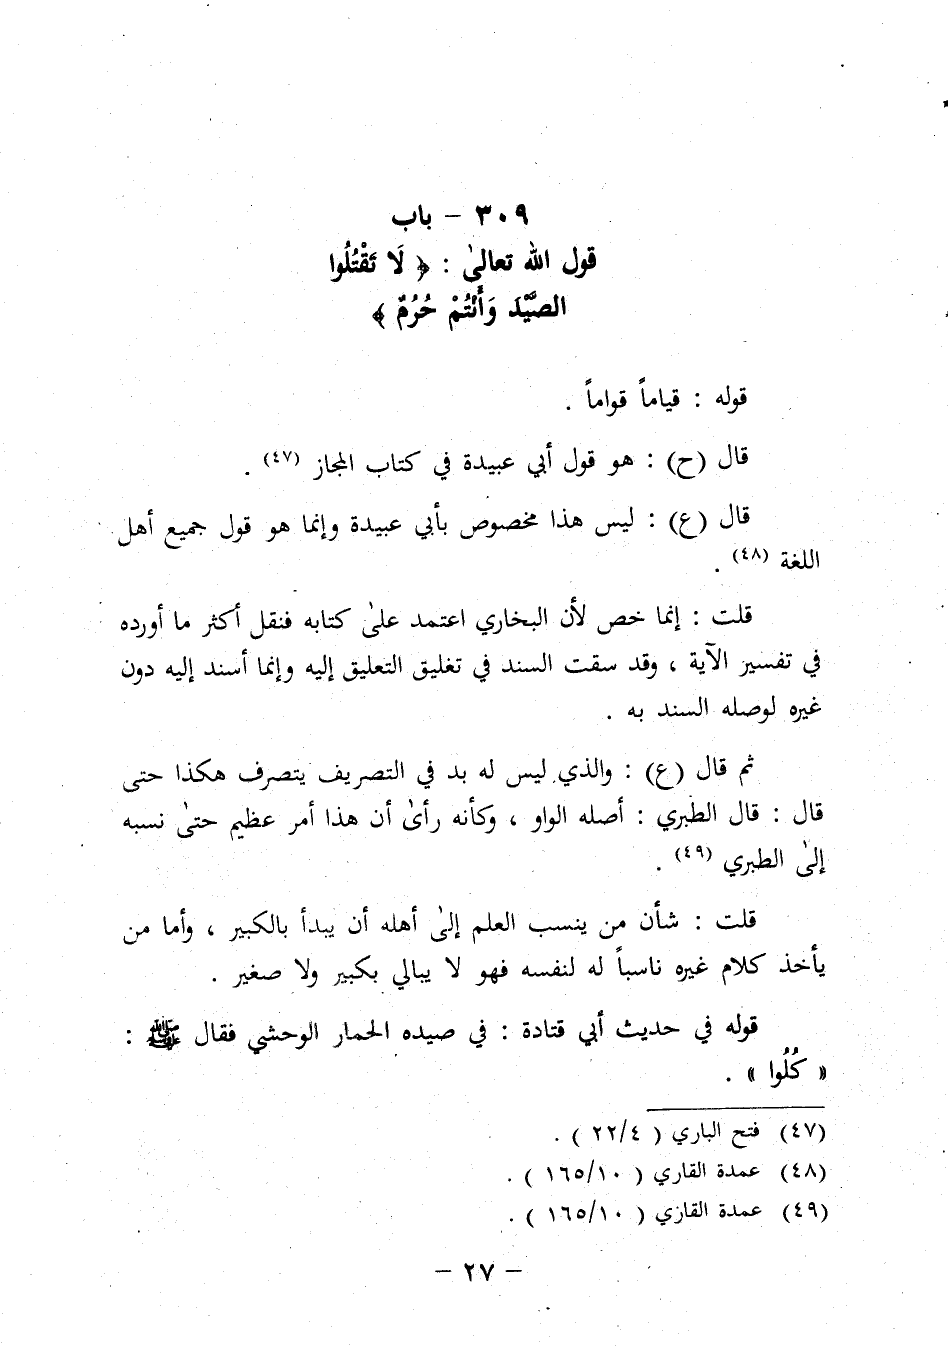 ٣٠٩ - باب
قول الله تعالىٰ : ﴿ لَا تَقْتُلُوا
الصَّيْدَ وَأَنْتُمْ حُرُمٌ ﴾
قوله : قياماً قواماً .
قال (ح) : هو قول أبي عبيدة في كتاب المجاز (٤٧) .
قال (ع) : ليس هذا مخصوص بأبي عبيدة وإنما هو قول جميع أهل
اللغة (٤٨) .
قلت : إنما خص لأن البخاري اعتمد علىٰ كتابه فنقل أكثر ما أورده
في تفسير الآية ، وقد سقت السند في تغليق التعليق إليه وإنما أسند إليه دون
غيره لوصله السند به .
ثم قال (ع) : والذي ليس له بد في التصريف يتصرف هكذا حتى
قال : قال الطبري : أصله الواو ، وكأنه رأىٰ أن هذا أمر عظيم حتىٰ نسبه
إلىٰ الطبري (٤٩) .
قلت : شأن من ينسب العلم إلىٰ أهله أن يبدأ بالكبير ، وأما من
يأخذ كلام غيره ناسباً له لنفسه فهو لا يبالي بكبير ولا صغير .
قوله في حديث أبي قتادة : في صيده الحمار الوحشي فقال ﷺ :
« كُلُوا » .
(٤٧) فتح الباري ( ٢٢/٤ ) .
(٤٨) عمدة القاري ( ١٦٥/١٠ ) .
(٤٩) عمدة القازي ( ١٦٥/١٠ ) .
- ٢٧ -